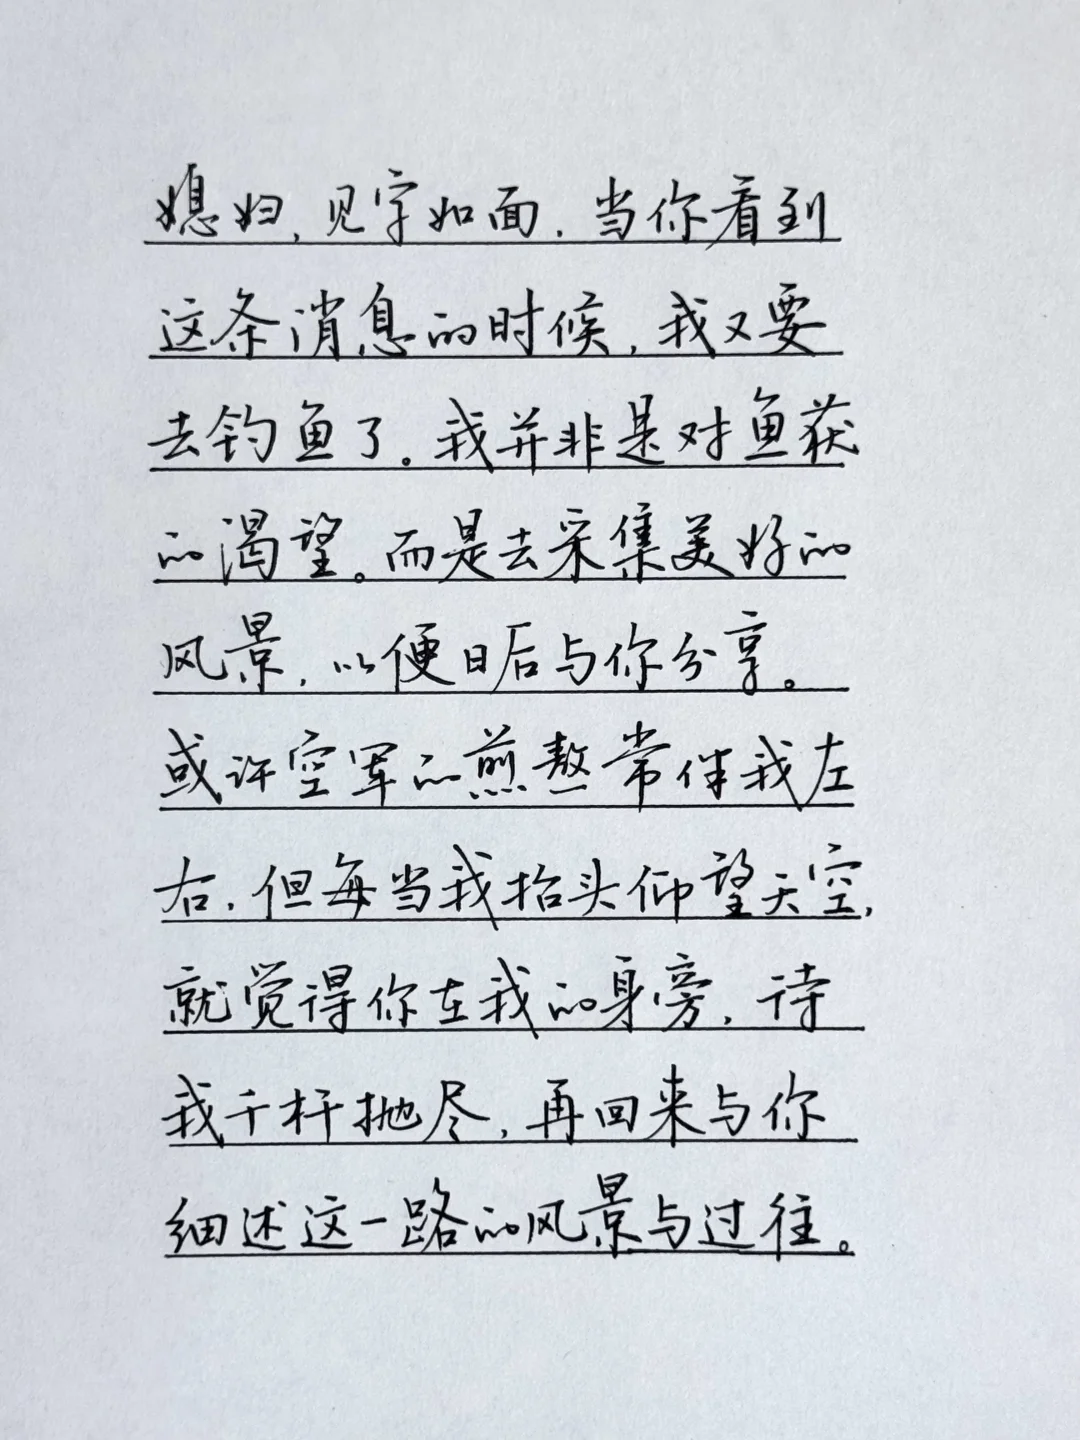 媳妇,见字如面.当你看到
这条消息的时候,我又要
去钓鱼了。我并非是对鱼获
的渴望。而是去采集美好的
风景,以便日后与你分享。
或许空军的煎熬常伴我左
右.但每当我抬头仰望天空,
就觉得你在我的身旁.待
我千杆抛尽,再回来与你
细述这一路的风景与过往。